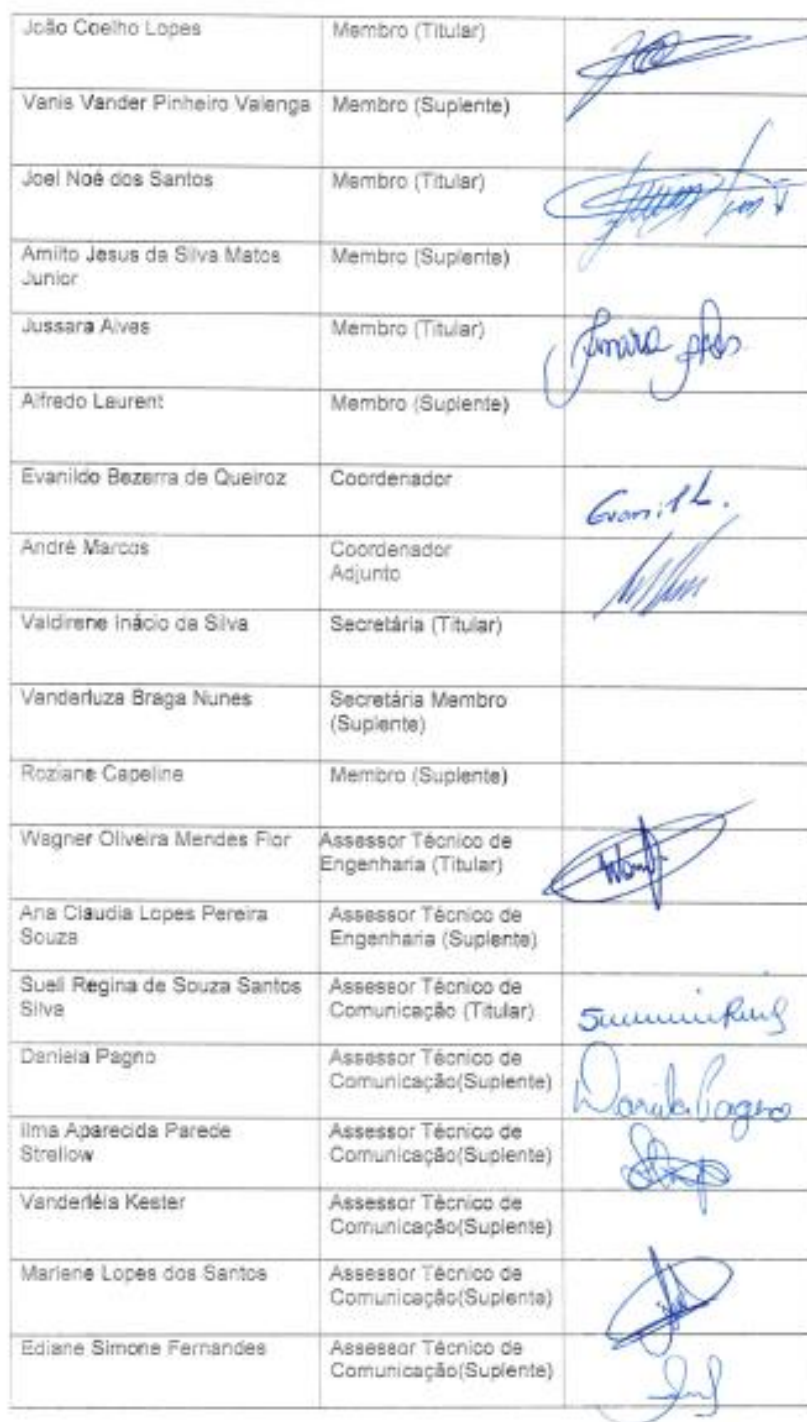 João Coelho Lopes Membro (Titular)
Vanis Vander Pinheiro Valenga Membro (Suplente)
Joel Noé dos Santos Membro (Titular)
Amilto Jesus da Silva Matos Membro (Suplente)
Junior
Jussara Alves Membro (Titular)
Alfredo Laurent Membro (Suplente)
Evanildo Bezerra de Queiroz Coordenador
André Marcos Coordenador
Adjunto
Valdirene Inácio da Silva Secretária (Titular)
Vanderluza Braga Nunes Secretária Membro
(Suplente)
Roziane Capeline Membro (Suplente)
Wagner Oliveira Mendes Flor Assessor Técnico de
Engenharia (Titular)
Ana Claudia Lopes Pereira Assessor Técnico de
Souza Engenharia (Suplente)
Sueli Regina de Souza Santos Assessor Técnico de
Silva Comunicação (Titular)
Daniela Pagno Assessor Técnico de
Comunicação(Suplente)
Daniela Pagno
Ilma Aparecida Parede Assessor Técnico de
Strellow Comunicação(Suplente)
Vanderléia Kester Assessor Técnico de
Comunicação(Suplente)
Marlene Lopes dos Santos Assessor Técnico de
Comunicação(Suplente)
Ediane Simone Fernandes Assessor Técnico de
Comunicação(Suplente)